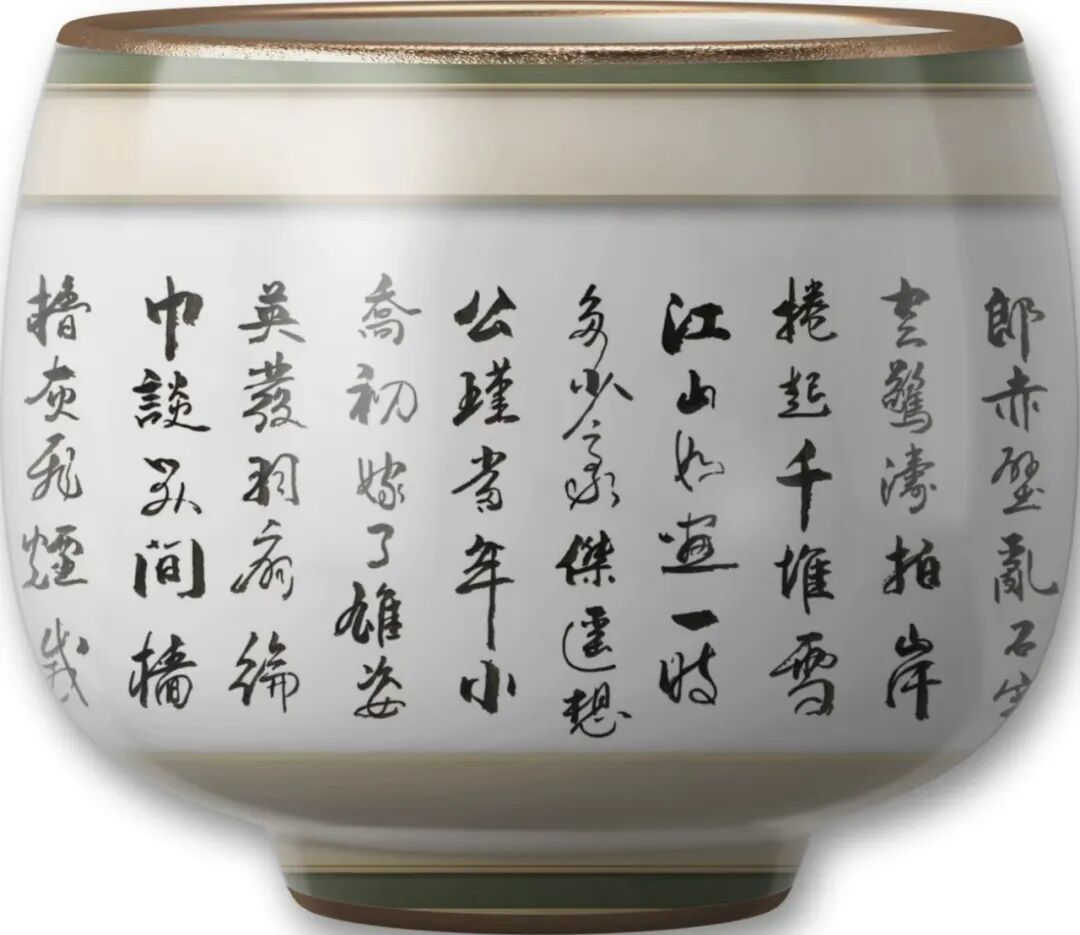 郎赤壁亂石穿
空驚濤拍岸
捲起千堆雪
江山如畫一時
多少豪傑遙想
公瑾當年小
喬初嫁了雄姿
英發羽扇綸
巾談笑間檣
櫓灰飛煙滅